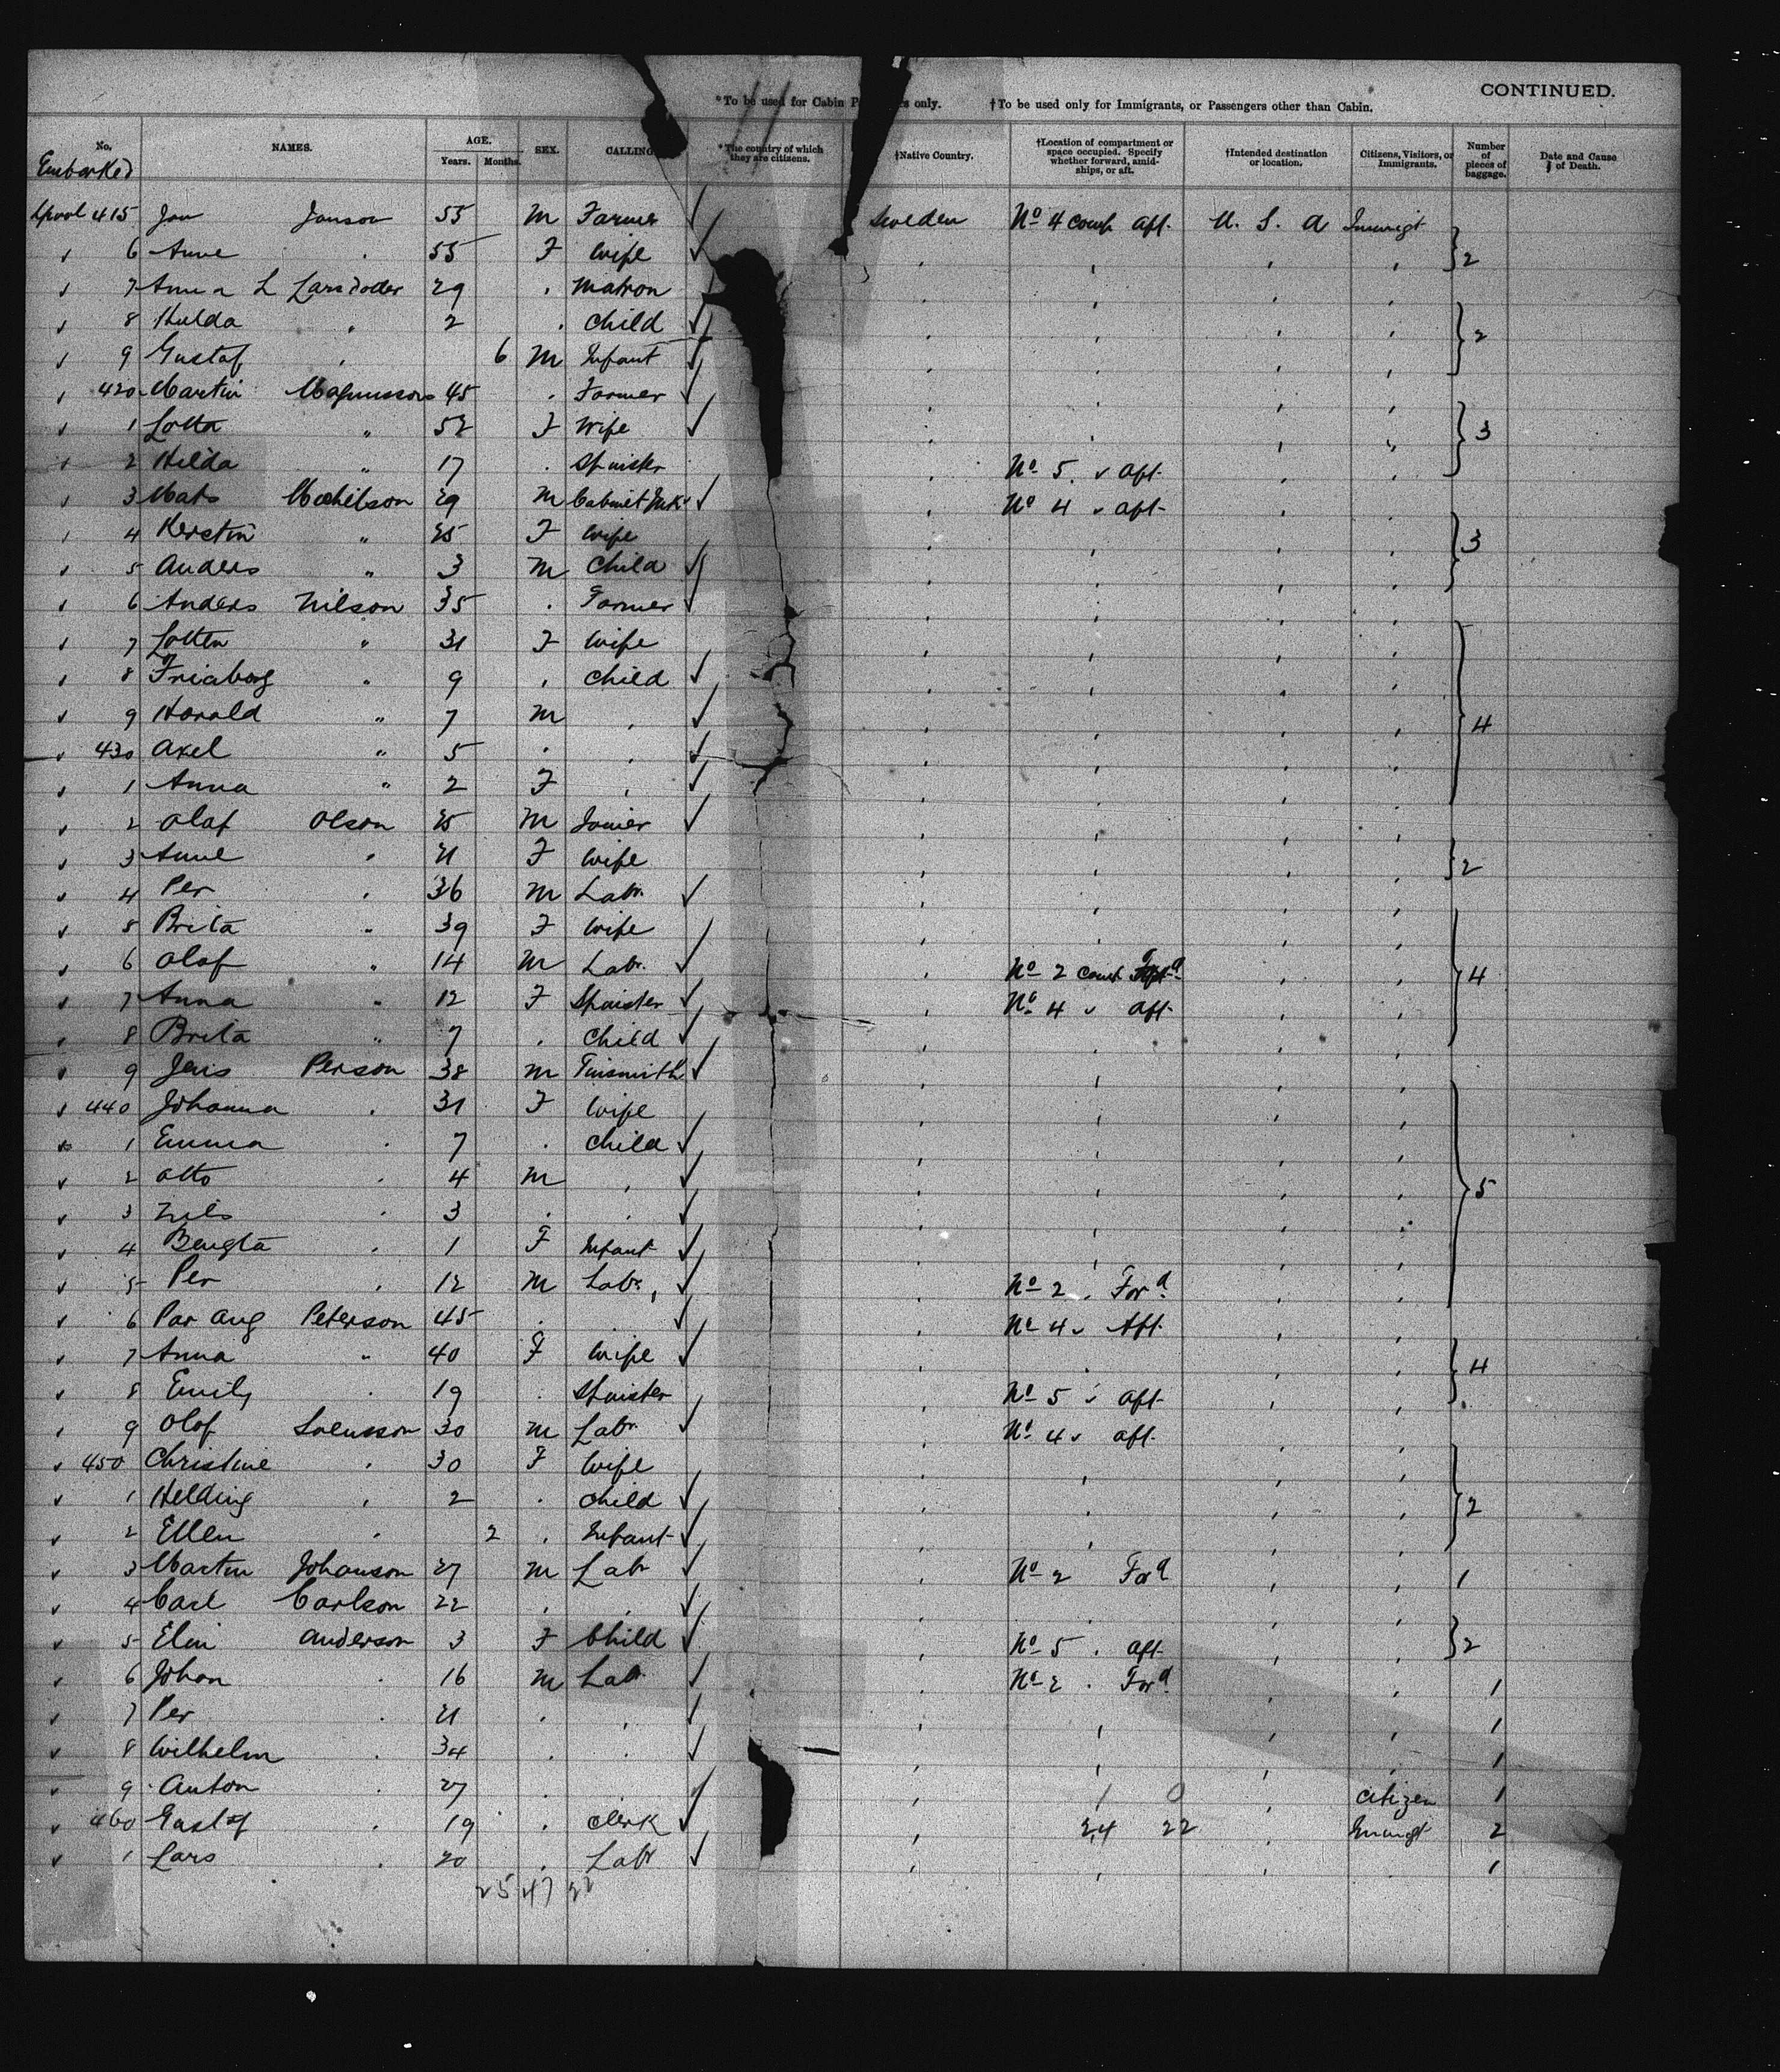 11
*To be used for Cabin P s only. †To be used only for Immigrants, or Passengers other than Cabin. CONTINUED.
No. NAMES. AGE. Years. Months. SEX. CALLING *The country of which they are citizens. †Native Country. †Location of compartment or space occupied. Specify whether forward, amidships, or aft. †Intended destination or location. Citizens, Visitors, or Immigrants. Number of pieces of baggage. Date and Cause of Death.
Embarked
Lpool 415 Jan Janson 55 M Farmer ✓ Sweden No 4 comp aft. U. S. A Immigt
6 Anne " 55 F Wife ✓ 2
7 Anna L Larsdoder 29 " Matron
8 Hulda " 2 " Child ✓ 2
9 Gustaf " 6 M Infant ✓
420 Martin Magnusson 45 " Farmer ✓
1 Lotta " 52 F Wife ✓ 3
2 Hilda " 17 " Spinster No 5 " aft
3 Mats 29 M Cabinet Mkr ✓ No 4 " aft
4 Kerstin " 25 F Wife 3
5 Anders " 3 M Child ✓
6 Anders Nilson 35 " Farmer ✓
7 Lotten " 31 F Wife
8 " 9 " Child ✓
9 Harald " 7 M " ✓ 4
430 Axel " 5 " " ✓
1 Anna " 2 F " ✓
2 Olaf Olson 25 M Joiner ✓
3 Anne " 21 F Wife 2
4 Per " 36 M Labr ✓
5 Brita " 39 F Wife
6 Olof " 14 M Labr. ✓ No 2 comp 4
7 Anna " 12 F Spinster ✓ No 4 " aft
8 Brita " 7 " Child ✓
9 Jens Person 38 M Tinsmith ✓
440 Johanna " 31 F Wife
1 Emma " 7 " Child ✓
2 Otto " 4 M " ✓ 5
3 Nils " 3 " " ✓
4 Bengta " 1 F Infant ✓
5 Per " 12 M Labr, ✓ No 2 " Ford
6 Par Aug Peterson 45 " " ✓ No 4 " Aft
7 Anna " 40 F Wife ✓ 4
8 Emily " 19 " Spinster No 5 " aft
9 Olof Svensson 30 M Labr ✓ No 4 " aft
450 Christine " 30 F Wife
1 Helding " 2 " Child ✓ 2
2 Ellen " 2 " Infant ✓
3 Martin Johanson 27 M Labr ✓ No 2 Ford 1
4 Carl Carlson 22 " " ✓
5 Elin Anderson 3 F Child ✓ No 5 " aft 2
6 Johan " 16 M Labr ✓ No 2 " Ford 1
7 Per " 21 " " ✓ 1
8 Wilhelm " 34 " " ✓ 1
9 Anton " 27 " " ✓ 1 0 Citizen 1
460 Gustaf " 19 " Clerk ✓ 24 22 2
1 Lars " 20 " Labr ✓ 1
25 47 22